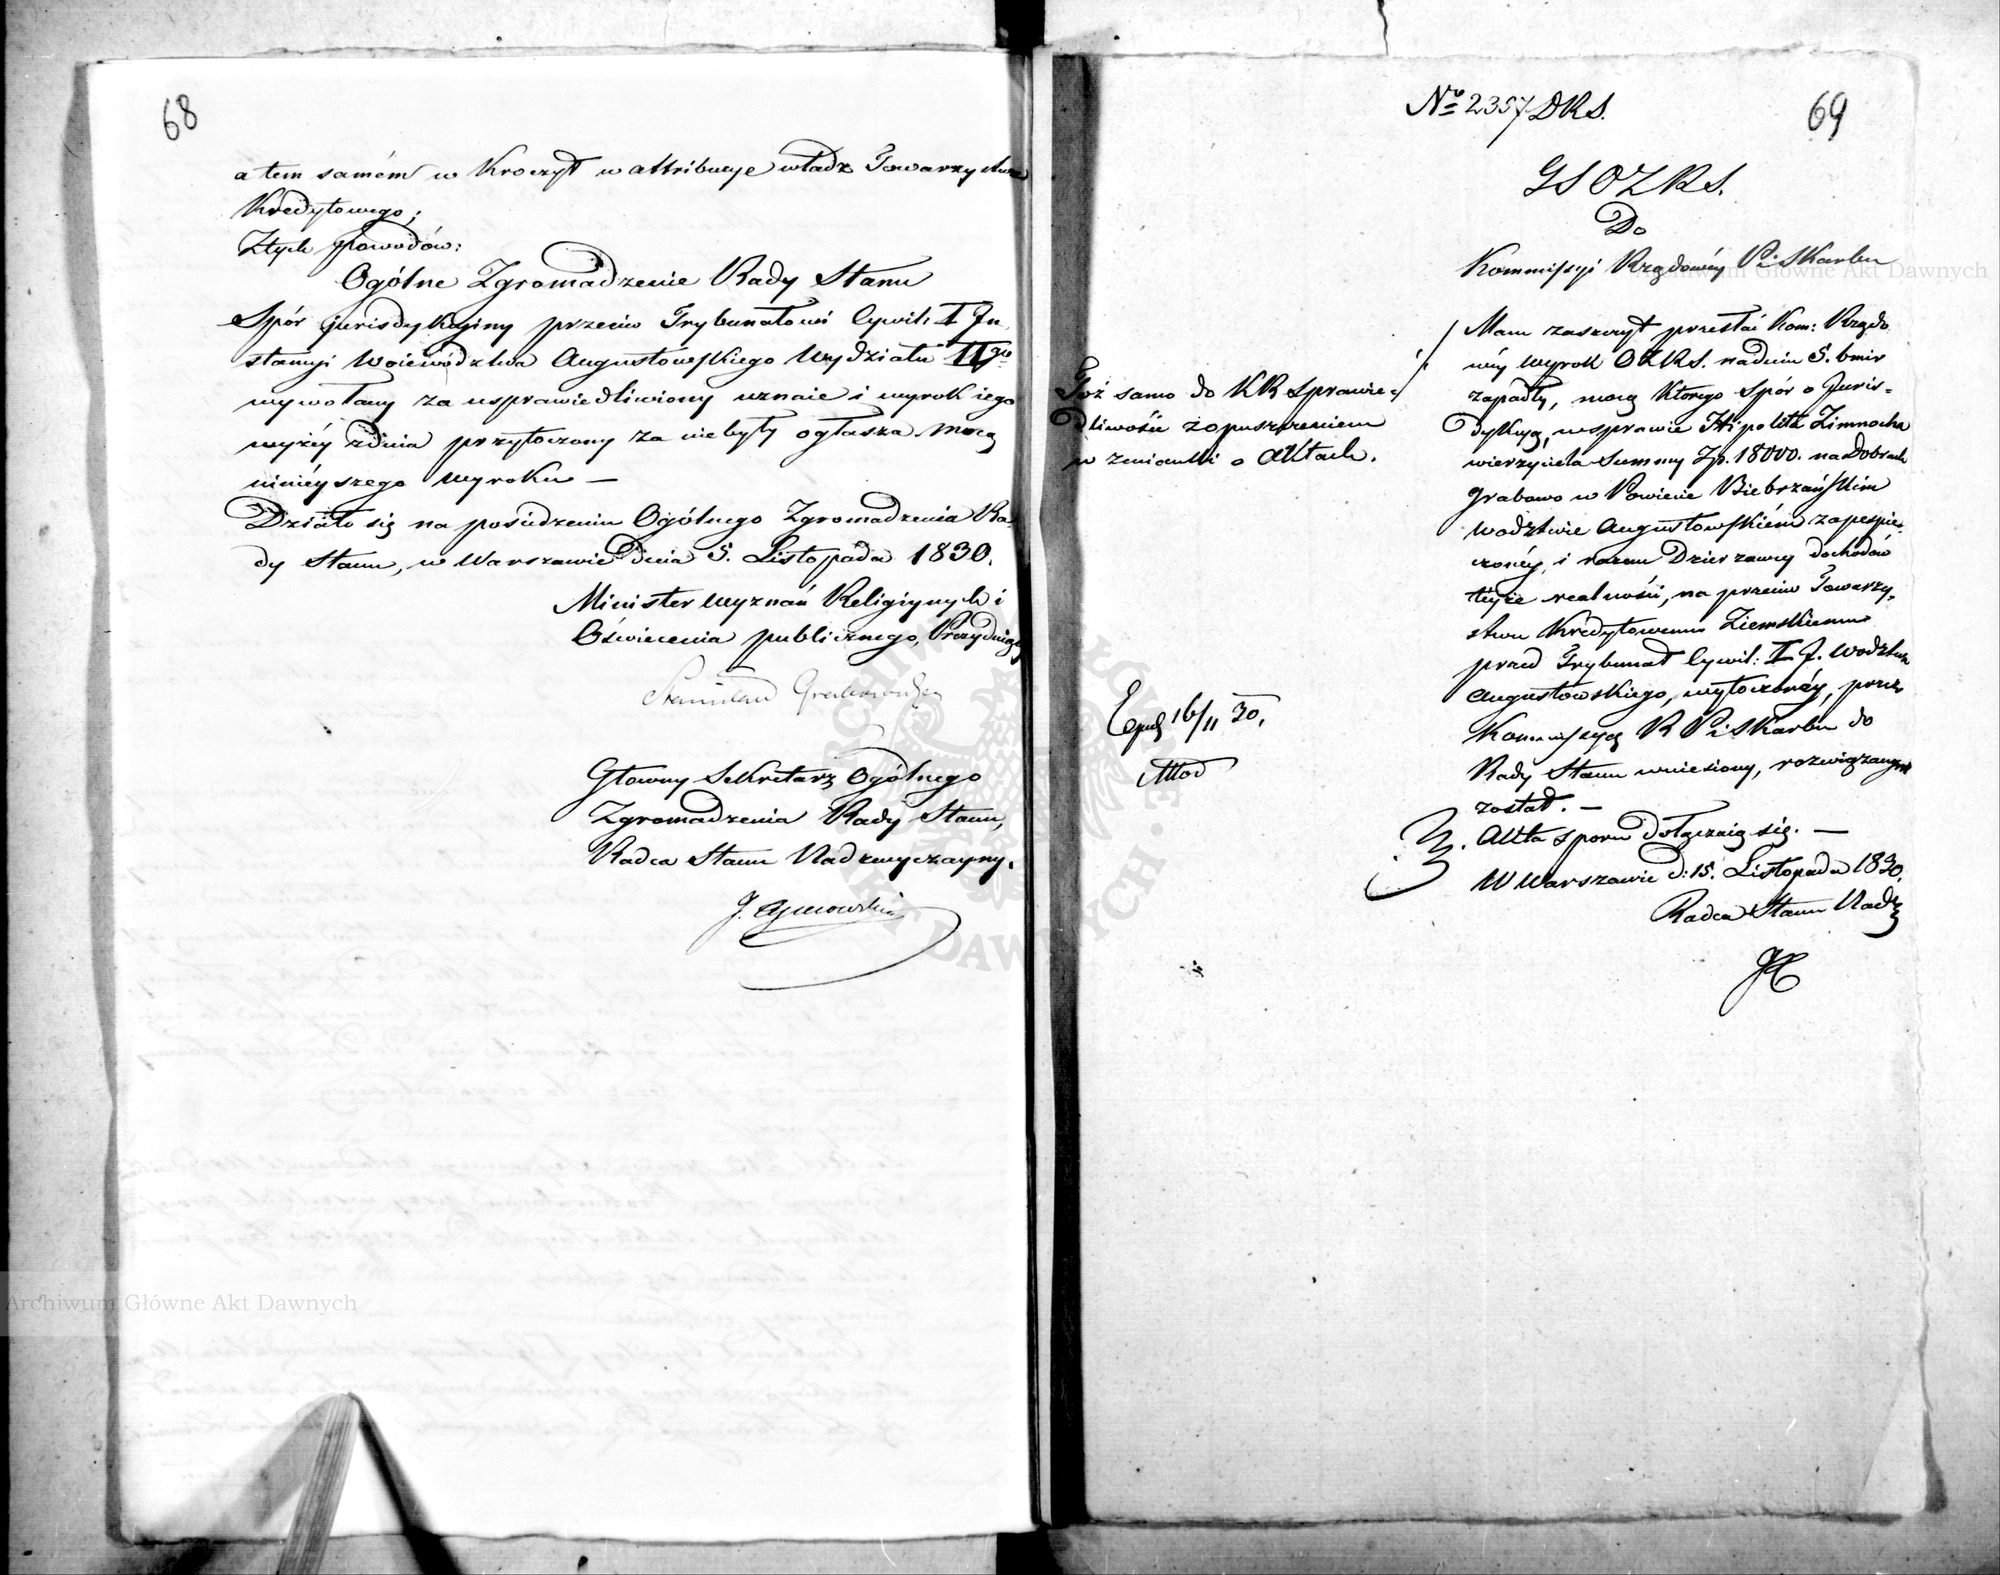 68
a tem samém wkroczył w attribucye władz Towarzystwa
Kredytowego;
Z tych powodów:
Ogólne Zgromadzenie Rady Stanu
Spór jurisdykcyiny przeciw Trybunałowi Cywil: I In
stancyi Woiewództwa Augustowskiego Wydziału II go
wywołany za usprawiedliwiony uznaie i wyrok iego
wyżéy zdnia przytoczony za niebyły ogłasza mocą
ninieyszego wyroku —
Działo się na posiedzeniu Ogólnego Zgromadzenia Ra-
dy Stanu, w Warszawie dnia 5. Listopada 1830.
Minister Wyznań Religiynych i
Oświecenia publicznego, Prezyduiący
Stanisław Grabowski
Głowny Sekretarz Ogólnego
Zgromadzenia Rady Stanu,
Radca Stanu Nadzwyczayny.
J.
No 2357 DRS.
69
GSOZRS.
Do
Kommissyi Rządowéy P i Skarbu
Mam zaszczyt przesłać Kom: Rządo
wéy wyrok OZRS. na dniu 5. bmir
zapadły, mocą którego Spór o Juris-
dykcyą, wsprawie Hipolita Zimnocha
wierzyciela Summy Zp. 18000. na Dobrach
Grabowo w Powiecie Biebrzańskim
Wodztwie Augustowskiém zapespie-
czonéy, i razem Dzierzawcy dochodów
teyże realności, na przeciw Towarzy-
stwu Kredytowemu Ziemskiemu
przed Trybunał Cywil: I J. Wodztwa
Augustowskiego, wytoczonéy, przez
Kommissyą R P i Skarbu do
Rady Stanu wniesiony, rozwiązanym
został. —
Akta sporu dołączaią się. —
W Warszawie d: 15. Listopada 1830.
Radca Stanu Nadz
Toż samo do KR Sprawie-
dliwości z opuszczeniem
w zmianki o Aktach.
16/11 30.
Archiwum Główne Akt Dawnych
Archiwum Główne Akt Dawnych